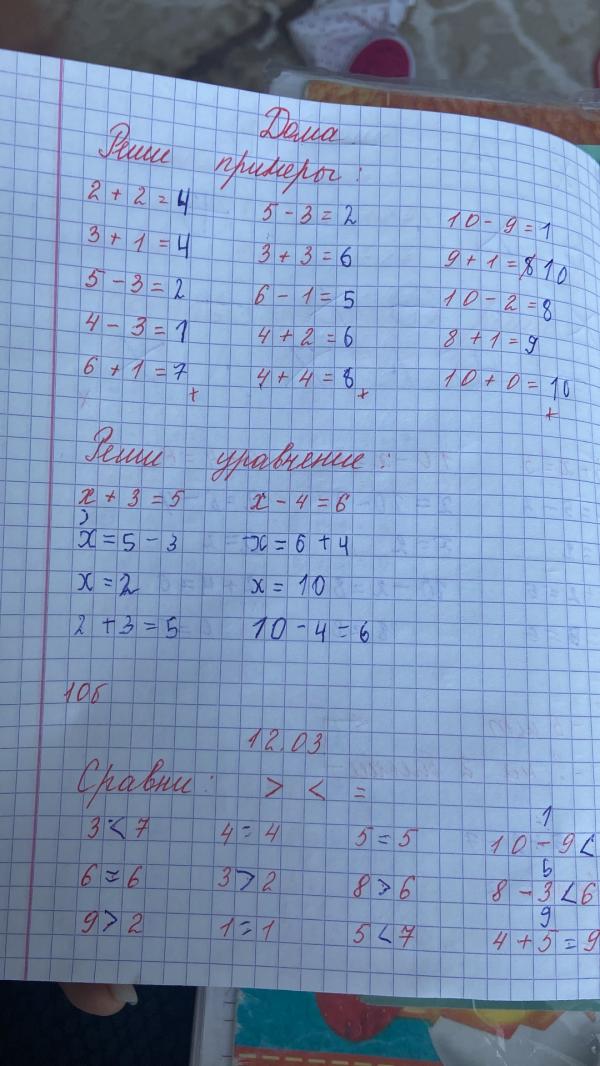 Дома
Реши примеры:
2 + 2 = 4 5 - 3 = 2 10 - 9 = 1
3 + 1 = 4 3 + 3 = 6 9 + 1 = 8 10
5 - 3 = 2 6 - 1 = 5 10 - 2 = 8
4 - 3 = 1 4 + 2 = 6 8 + 1 = 9
6 + 1 = 7 4 + 4 = 8 10 + 0 = 10
+ + +
Реши уравнение:
x + 3 = 5 x - 4 = 6
x = 5 - 3 x = 6 + 4
x = 2 x = 10
2 + 3 = 5 10 - 4 = 6
10б
12.03
Сравни: > < =
1
3 < 7 4 = 4 5 = 5 10 - 9 <
5
6 = 6 3 > 2 8 > 6 8 - 3 < 6
9
9 > 2 1 = 1 5 < 7 4 + 5 = 9